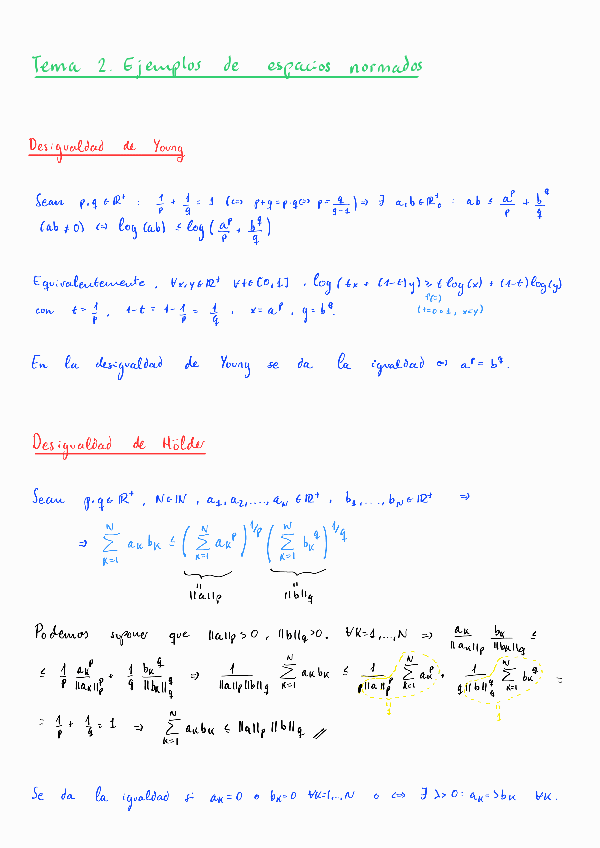 Tema 2. Ejemplos de espacios normados
Desigualdad de Young
Sean p,q ∈ ℝ⁺ : 1/p + 1/q = 1 (⇔ p+q = p·q ⇔ p = q/(q-1)) ⇒ ∃ a,b ∈ ℝ₀⁺ : ab ≤ a^p/p + b^q/q
(ab ≠ 0) ⇔ log(ab) ≤ log(a^p/p + b^q/q)
Equivalentemente, ∀x,y ∈ ℝ⁺ ∀t ∈ [0,1], log(tx + (1-t)y) ≥ t log(x) + (1-t) log(y)
con t = 1/p, 1-t = 1 - 1/p = 1/q, x = a^p, y = b^q.
En la desigualdad de Young se da la igualdad ⇔ a^p = b^q.
Desigualdad de Hölder
Sean p,q ∈ ℝ⁺, N ∈ ℕ, a₁, a₂, ..., a_N ∈ ℝ⁺, b₁, ..., b_N ∈ ℝ⁺ ⇒
⇒ ∑_{k=1}^{N} a_k b_k ≤ (∑_{k=1}^{N} a_k^p)^{1/p} (∑_{k=1}^{N} b_k^q)^{1/q}
‖a‖_p ‖b‖_q
Podemos suponer que ‖a‖_p > 0, ‖b‖_q > 0. ∀k=1,...,N ⇒ a_k/‖a_k‖_p b_k/‖b_k‖_q ≤
≤ 1/p a_k^p/‖a_k‖_p^p + 1/q b_k^q/‖b_k‖_q^q ⇒ 1/(‖a‖_p‖b‖_q) ∑_{k=1}^{N} a_k b_k ≤ 1/(p‖a‖_p^p) ∑_{k=1}^{N} a_k^p + 1/(q‖b‖_q^q) ∑_{k=1}^{N} b_k^q =
= 1/p + 1/q = 1 ⇒ ∑_{k=1}^{N} a_k b_k ≤ ‖a‖_p ‖b‖_q //
Se da la igualdad si a_k = 0 o b_k = 0 ∀k=1,..,N o ⇔ ∃ λ>0 : a_k = λb_k ∀k.